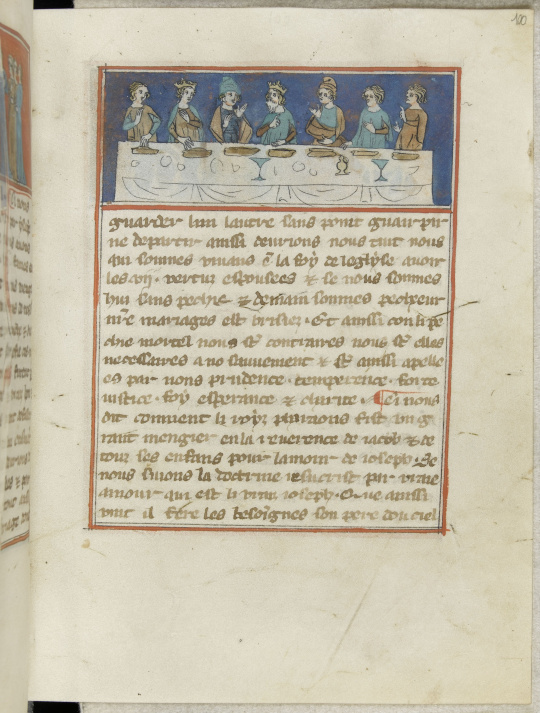 100
guarder lun lautre sans point guerpir
ne departir aussi deurions nous tuit nous
qui sommes viuans en la foy de leglyse auoir
les vii. vertuz espousees & se nous sommes
hui sans pechie & demain sommes pecheur
mariages est brisiez. Et aussi con li pe
chie mortel nous st contraires nous st elles
necessaires a no sauuement & st aussi apelle
es par nons prudence. temperence. force
iustice. foy esperance & charite. Ci nous
dit comment li roys pharaons fist un g
rant mengier en la reuerence de iacob & de
touz ses enfans pour lamour de ioseph. Se
nous suions la doctrine ihesucrist par vraie
amour qui est li vrais ioseph. Que aussi
vint il fere les besoignes son pere dou ciel